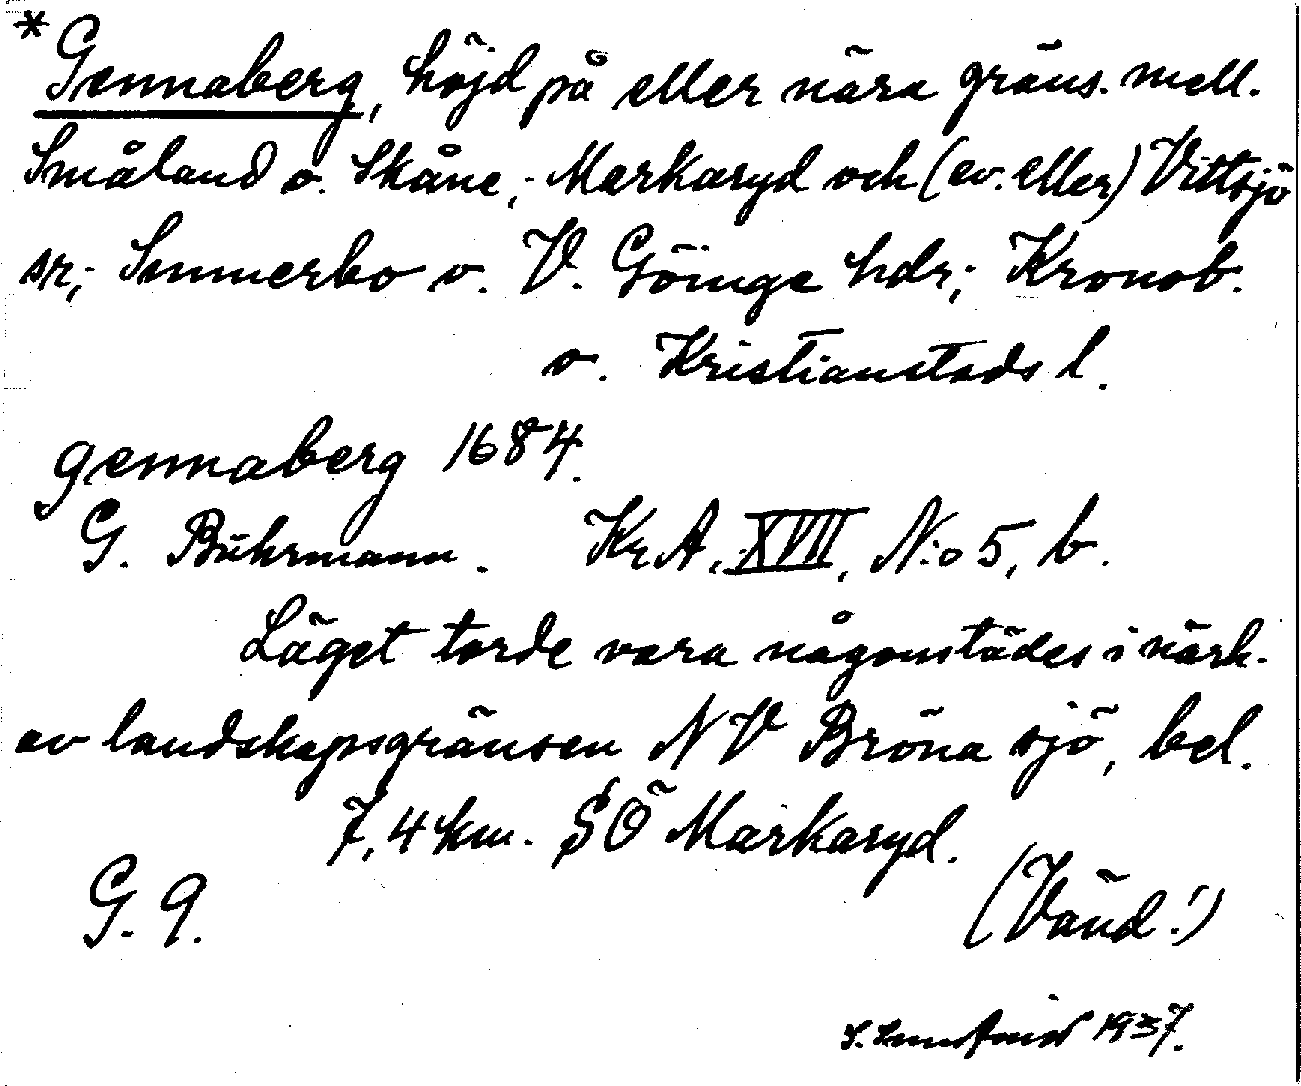 * Gennaberg, höjd på eller nära gräns. mell.
Småland o. Skåne,; Markaryd och (ev. eller) Vittsjö
sr,; Sunnerbo o. V. Göinge hdr,; Kronob.
o. Kristianstads l.
gennaberg 1684.
G. Buhrmann. Kr A, XVII, N:o 5, b.
Läget torde vara någonstädes i närh.
av landskapsgränsen NV Bröna sjö, bel.
7,4 km. SÖ Markaryd.
G. 9.
(Vänd!)
1937.